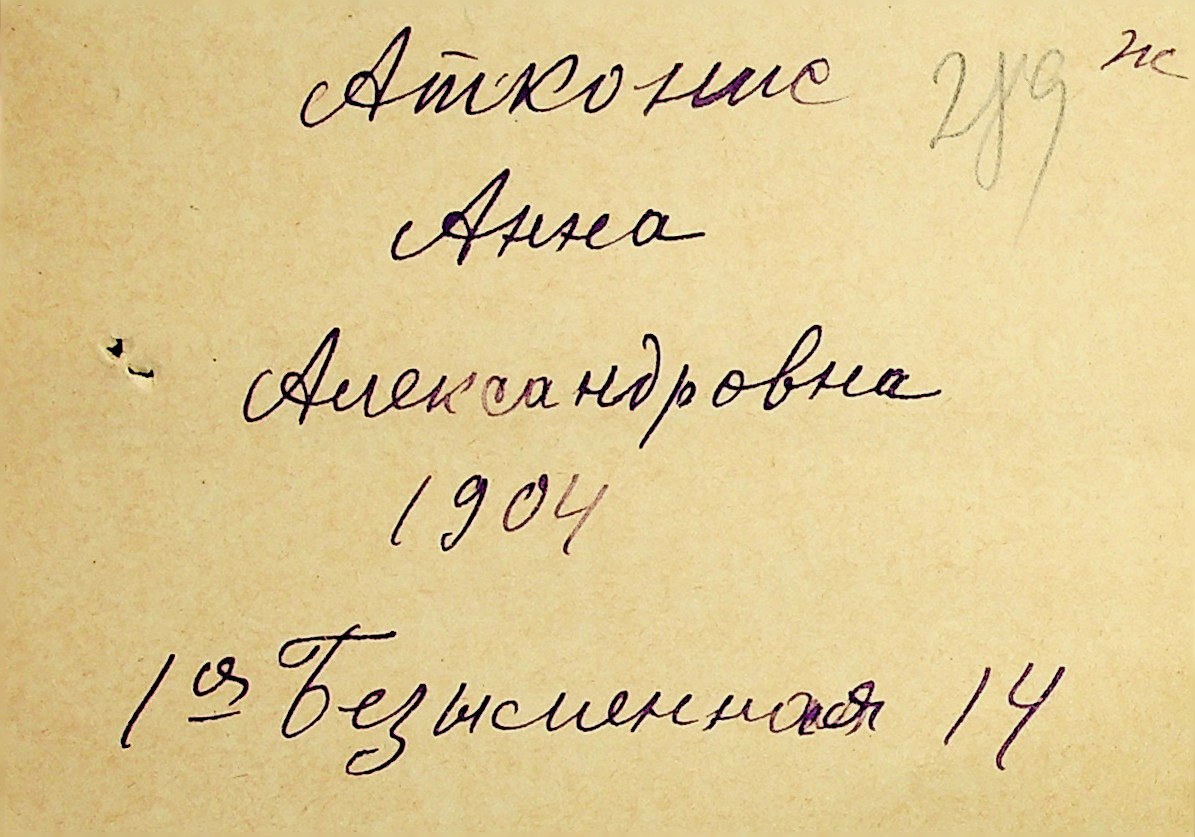 Атконис 289 ж
Анна
Александровна
1904
1ая Безыменная 14